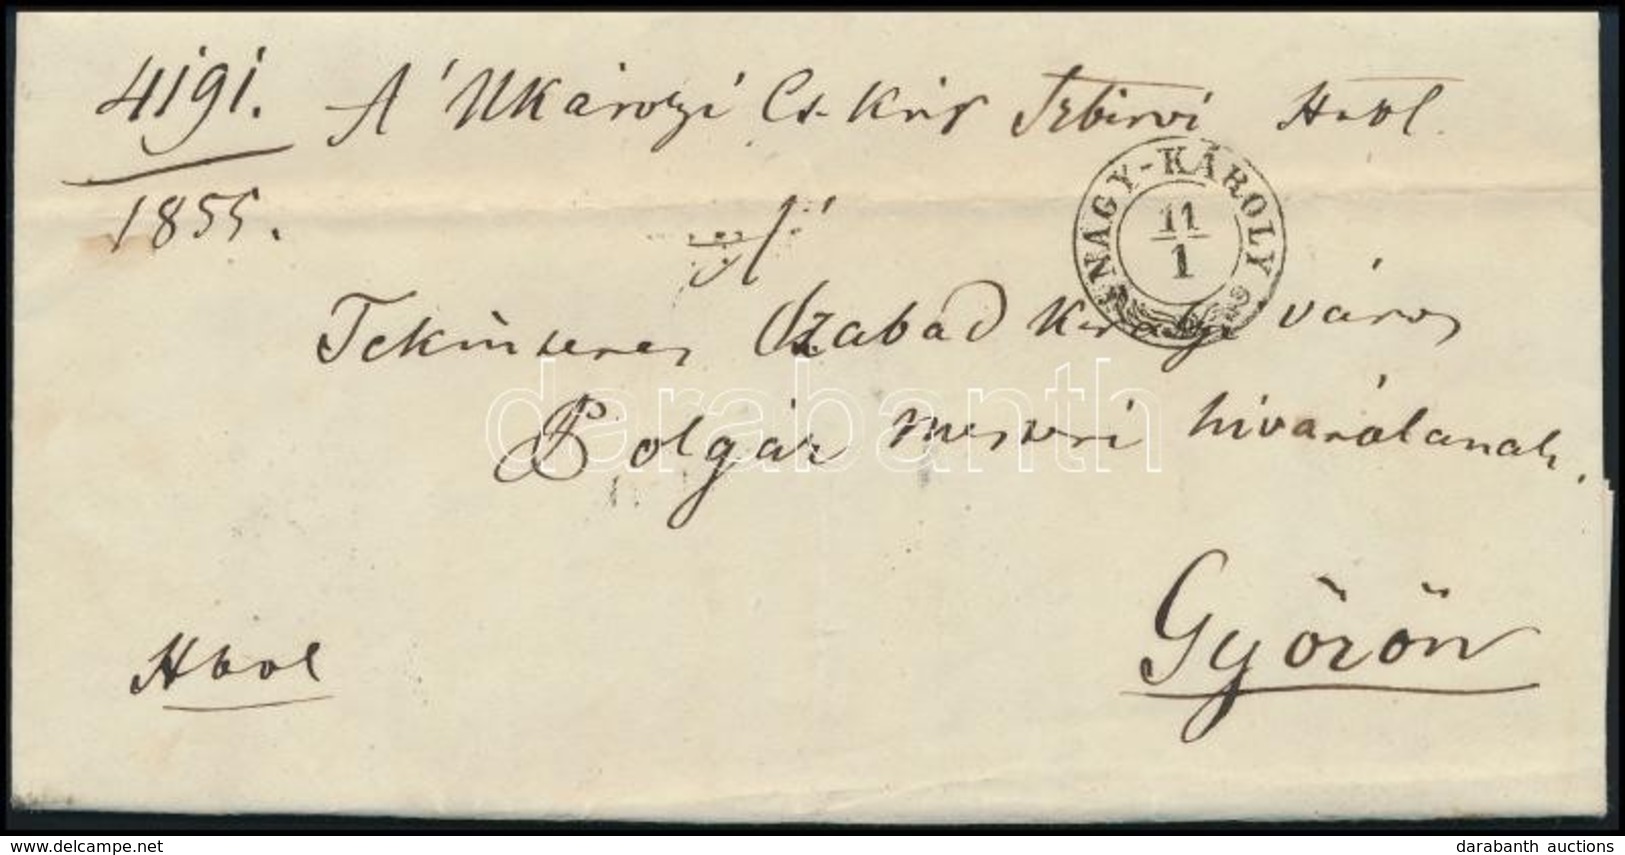 4191. A' NKárolyi Cs. Kir
1855.
NAGY-KÁROLY
11
1
Szabad Királyi város
Polgár mesteri hivatalanak.
Győrön
darabanth
www.delcampe.net
darabanth auctions